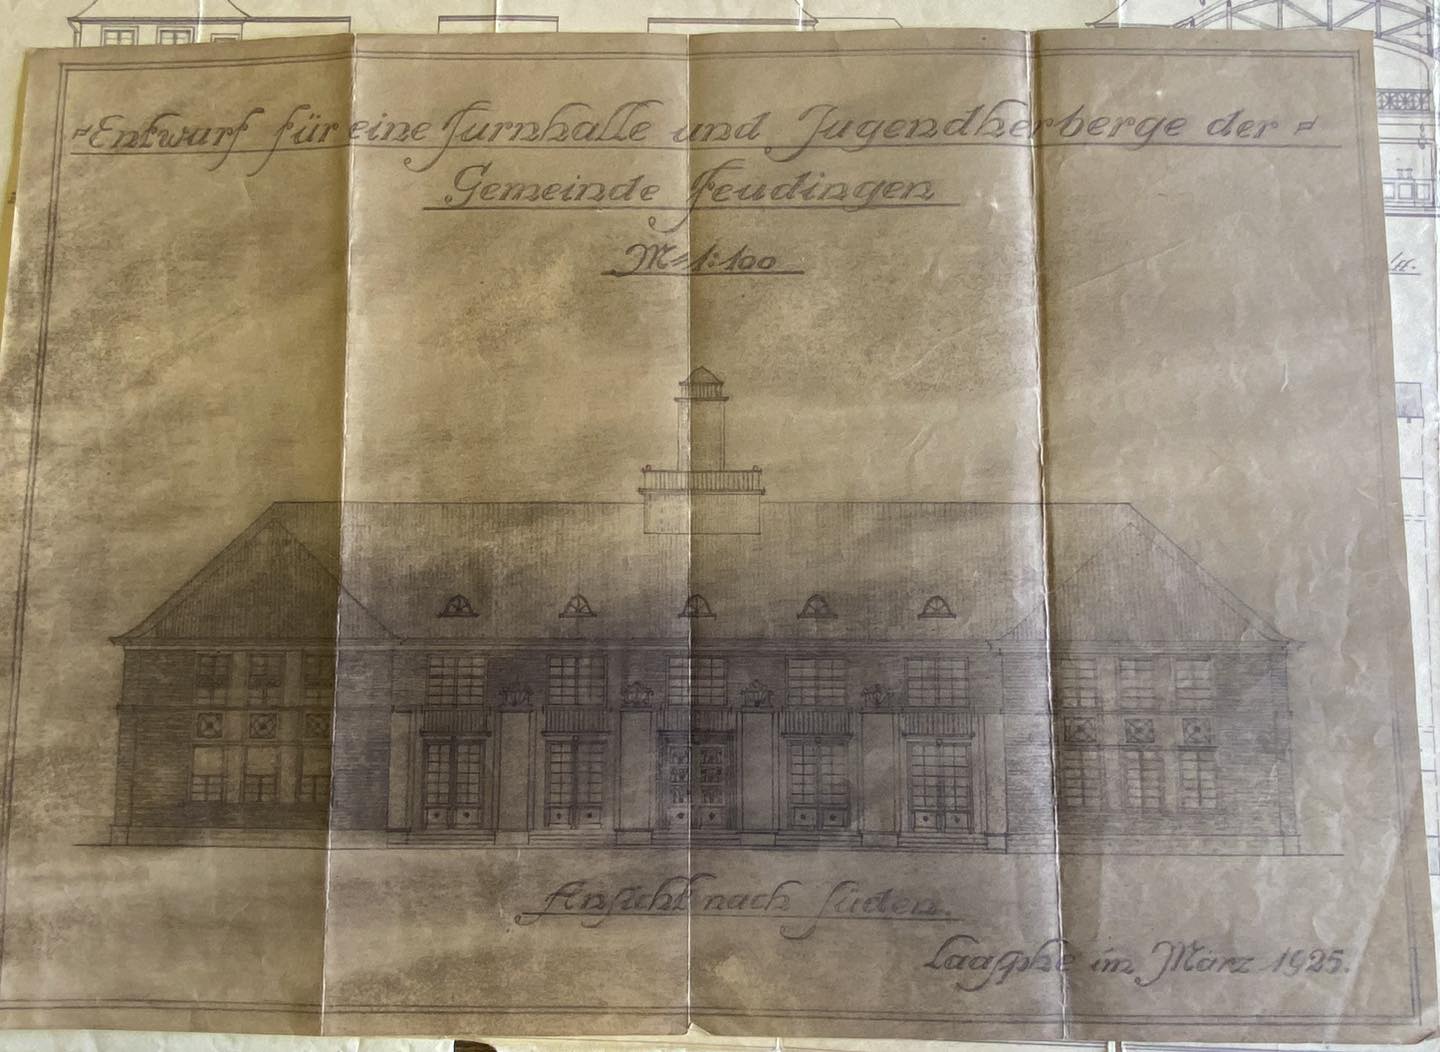 "Entwurf für eine Turnhalle und Jugendherberge der"
Gemeinde Feudingen
M = 1:100
Ansicht nach Süden.
Laasphe im März 1925.